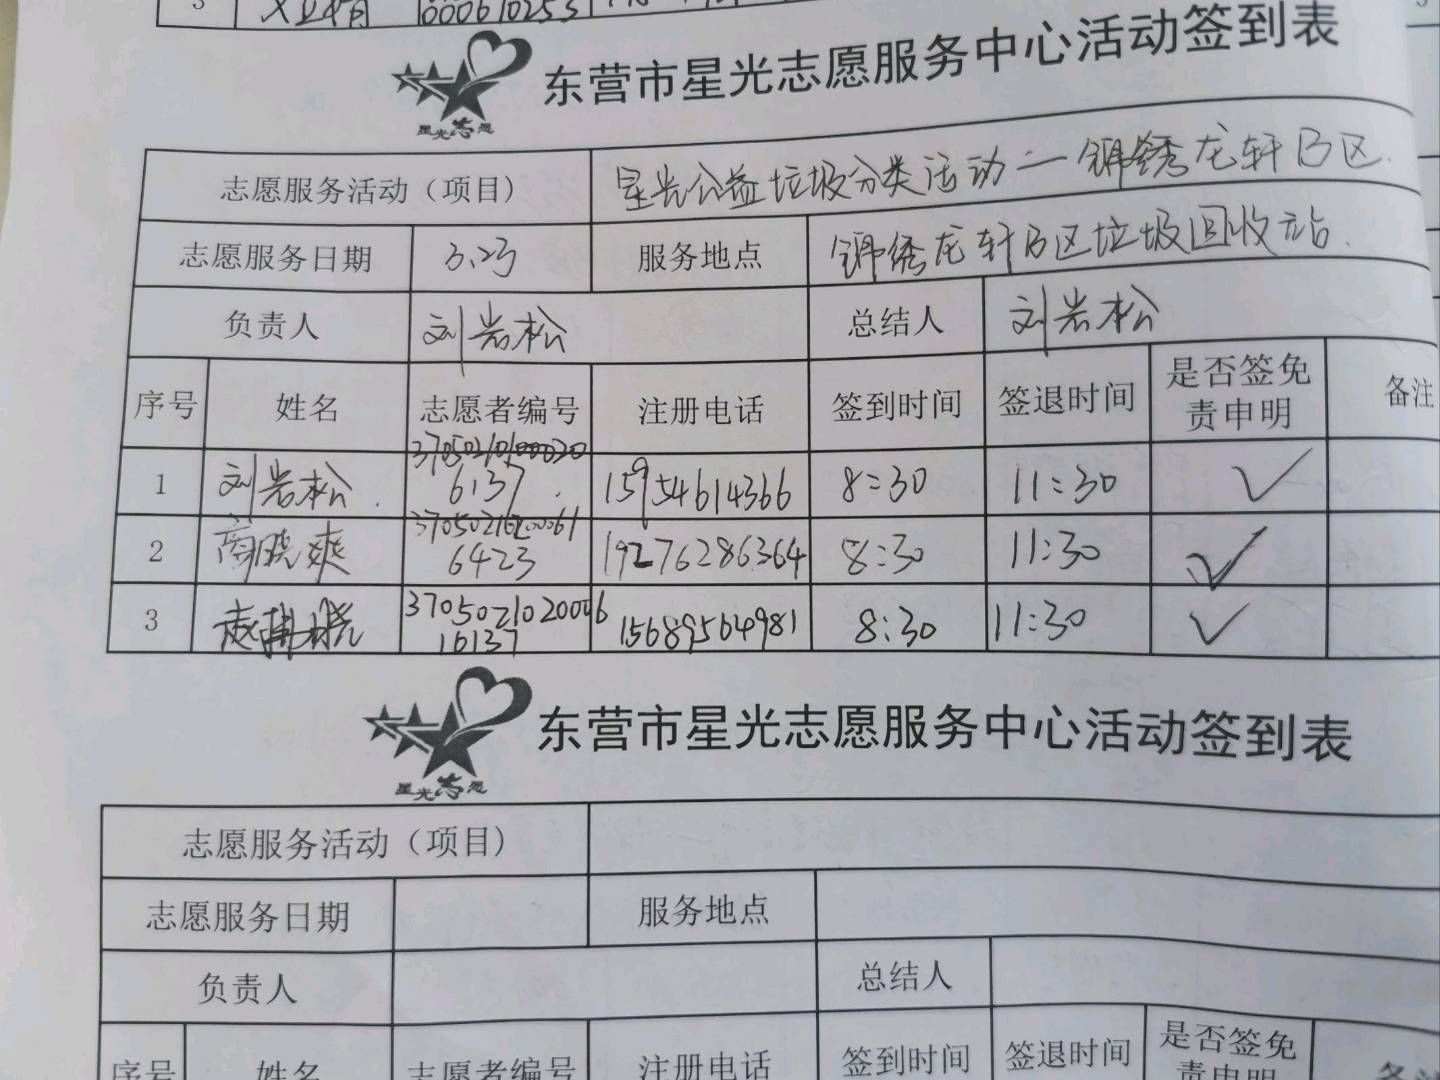 3
000610253
东营市星光志愿服务中心活动签到表
星光志愿
志愿服务活动（项目） 星光公益垃圾分类活动一锦绣龙轩B区
志愿服务日期 3.23 服务地点 锦绣龙轩B区垃圾回收站
负责人 刘岩松 总结人 刘岩松
序号 姓名 志愿者编号 注册电话 签到时间 签退时间 是否签免 备注
责申明
1 刘岩松 6137 15954614366 8:30 11:30 ✓
2 商晓爽 6423 19276286364 8:30 11:30 ✓
3 3705021020006 15689564981 8:30 11:30 ✓
10137
东营市星光志愿服务中心活动签到表
星光志愿
志愿服务活动（项目）
志愿服务日期 服务地点
负责人 总结人
序号 姓名 志愿者编号 注册电话 签到时间 签退时间 是否签免
责申明